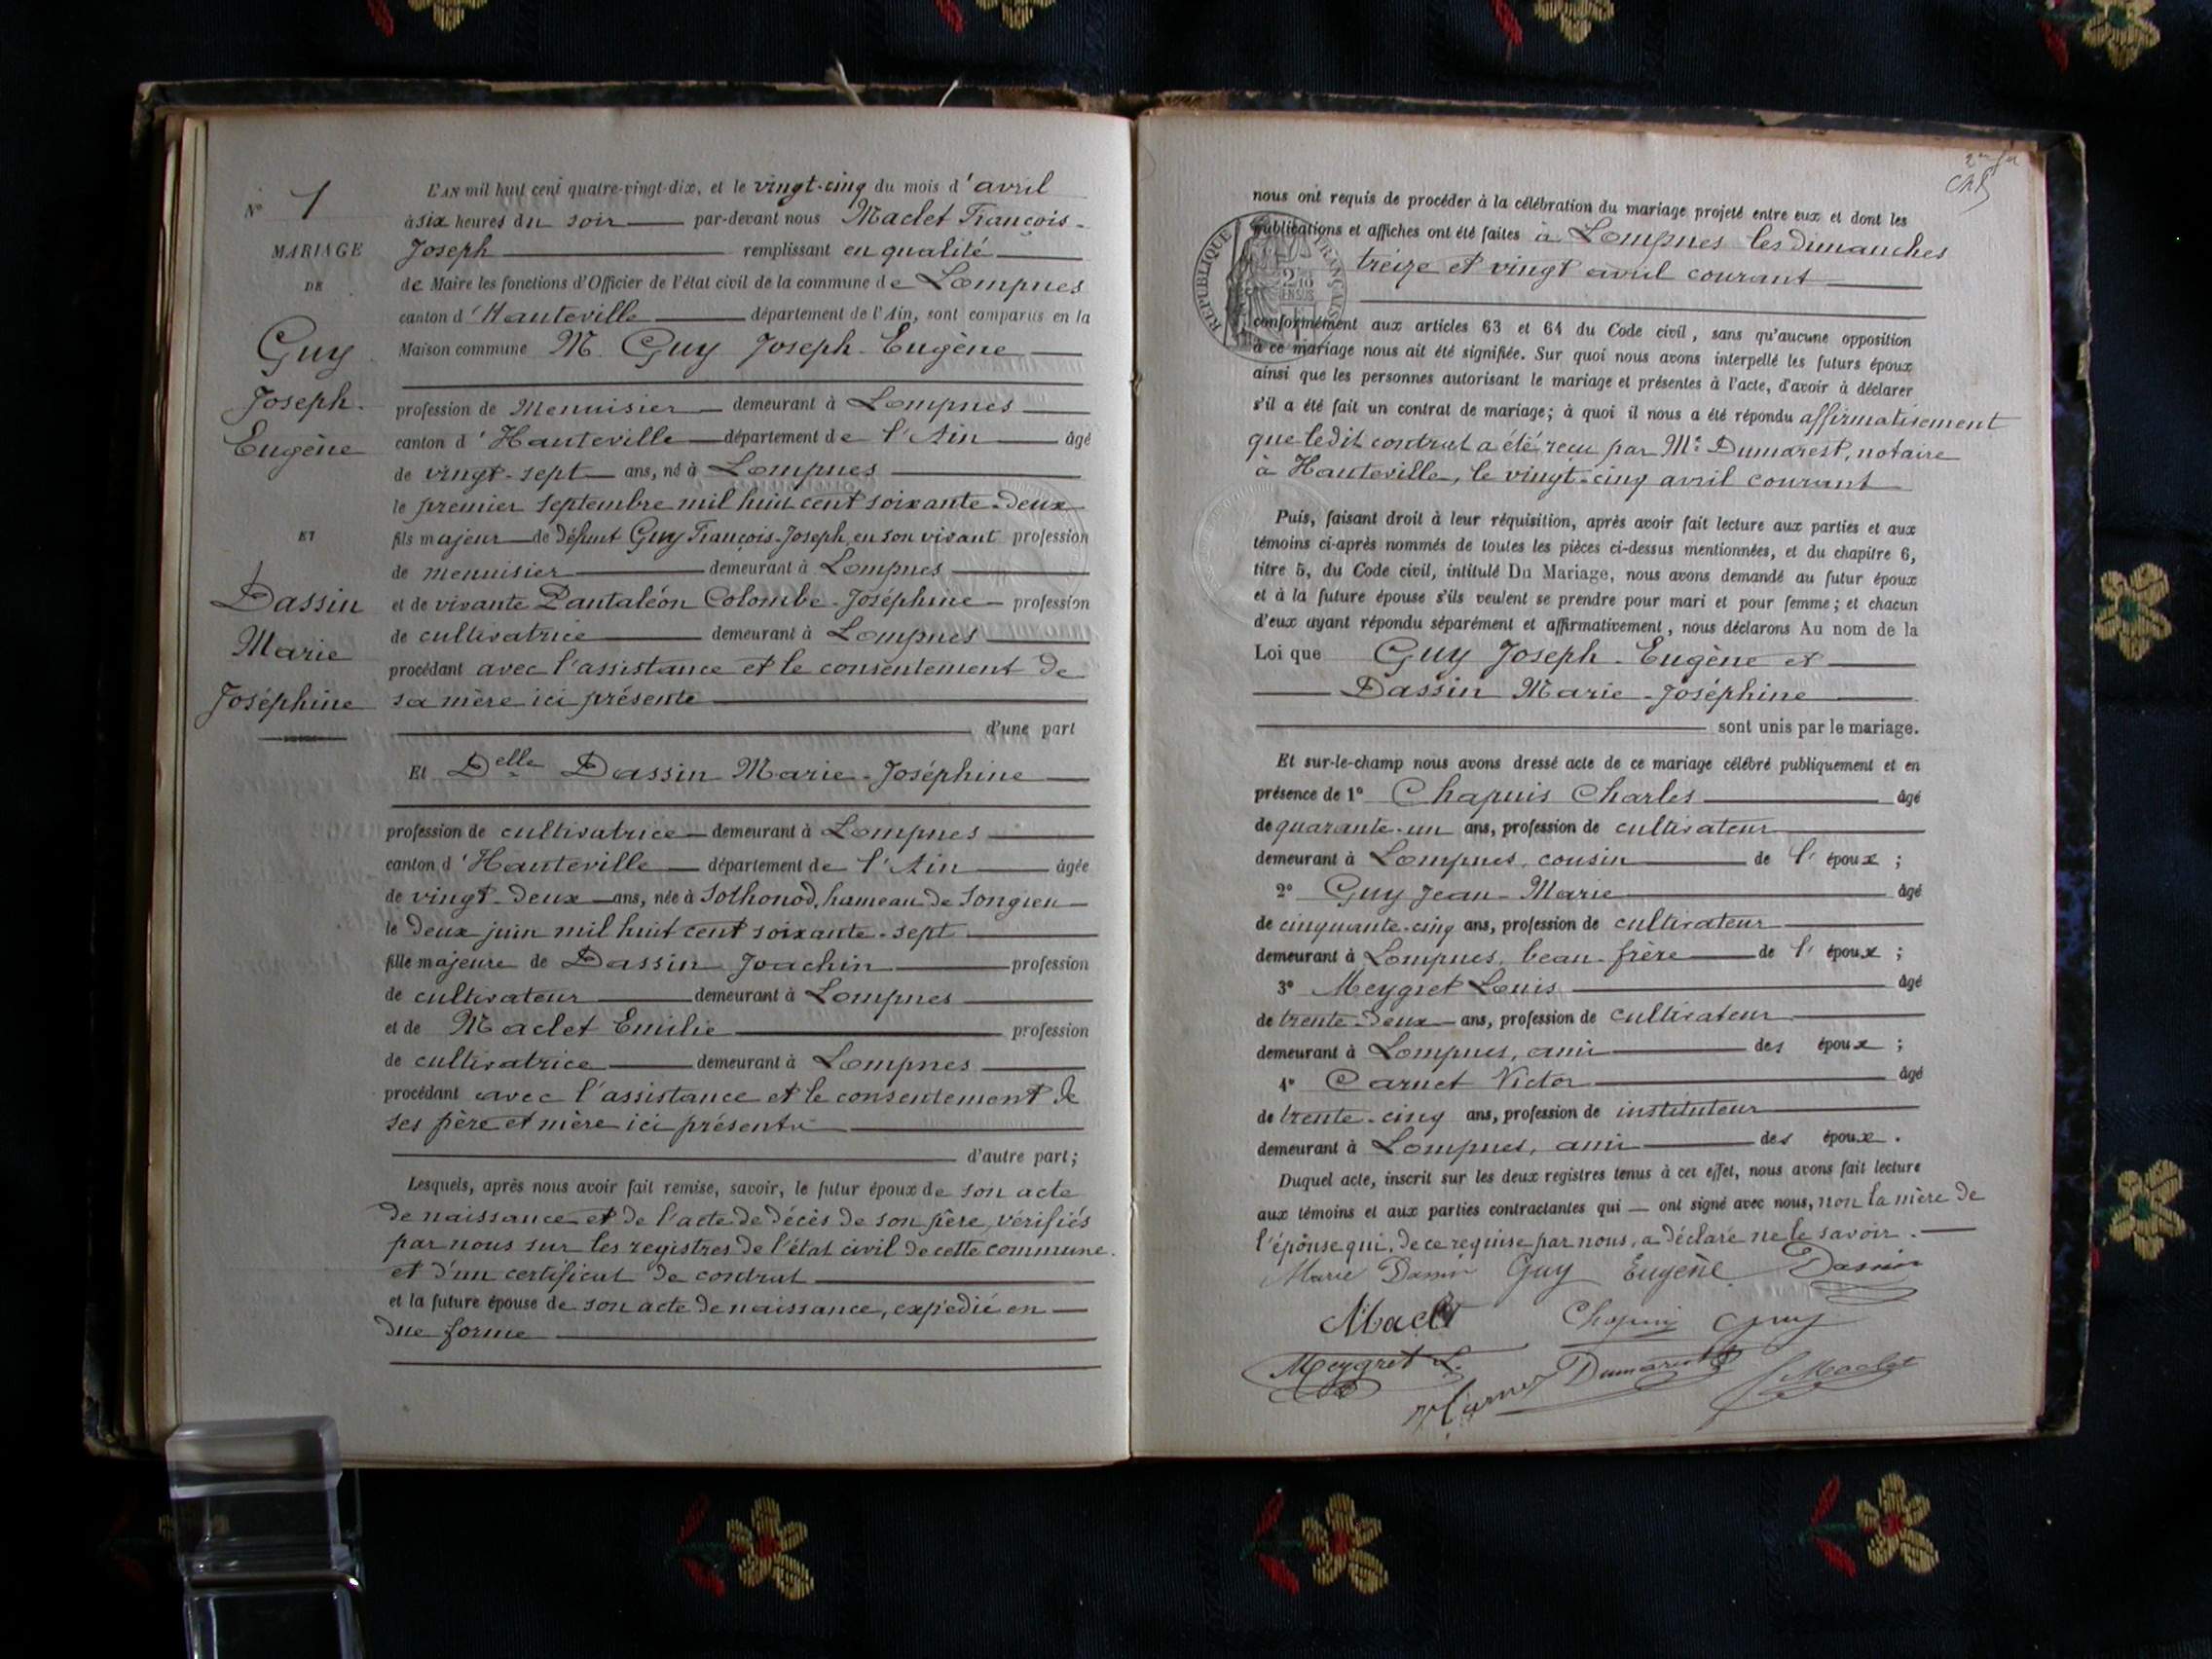 N° 1
MARIAGE
DE
Guy
Joseph-
Eugène
ET
Dassin
Marie
Joséphine
L'AN mil huit cent quatre-vingt-dix, et le vingt-cinq du mois d'avril
à six heures du soir par-devant nous Maclet François-
Joseph remplissant en qualité
de Maire les fonctions d'Officier de l'état civil de la commune de Lompnes
canton d'Hauteville département de l'Ain, sont comparus en la
Maison commune M. Guy Joseph-Eugène
profession de Menuisier demeurant à Lompnes
canton d'Hauteville département de l'Ain âgé
de vingt-sept ans, né à Lompnes
le premier septembre mil huit cent soixante-deux
fils majeur de défunt Guy François-Joseph, en son vivant profession
de menuisier demeurant à Lompnes
et de vivante Pantaléon Colombe-Joséphine profession
de cultivatrice demeurant à Lompnes
procédant avec l'assistance et le consentement de
sa mère ici présente
d'une part
Et Delle Dassin Marie-Joséphine
profession de cultivatrice demeurant à Lompnes
canton d'Hauteville département de l'Ain âgée
de vingt-deux ans, née à Sothonod, hameau de Songieu
le deux juin mil huit cent soixante-sept
fille majeure de Dassin Joachin profession
de cultivateur demeurant à Lompnes
et de Maclet Emilie profession
de cultivatrice demeurant à Lompnes
procédant avec l'assistance et le consentement de
ses père et mère ici présents
d'autre part;
Lesquels, après nous avoir fait remise, savoir, le futur époux de son acte
de naissance et de l'acte de décès de son père, vérifiés
par nous sur les registres de l'état civil de cette commune.
et d'un certificat de contrat
et la future épouse de son acte de naissance, expédié en
due forme
nous ont requis de procéder à la célébration du mariage projeté entre eux et dont les
publications et affiches ont été faites à Lompnes les dimanches
treize et vingt avril courant
RÉPUBLIQUE FRANÇAISE
conformément aux articles 63 et 64 du Code civil, sans qu'aucune opposition
à ce mariage nous ait été signifiée. Sur quoi nous avons interpellé les futurs époux
ainsi que les personnes autorisant le mariage et présentes à l'acte, d'avoir à déclarer
s'il a été fait un contrat de mariage; à quoi il nous a été répondu affirmativement
que ledit contrat a été reçu par Me Dumarest, notaire
à Hauteville, le vingt-cinq avril courant
Puis, faisant droit à leur réquisition, après avoir fait lecture aux parties et aux
témoins ci-après nommés de toutes les pièces ci-dessus mentionnées, et du chapitre 6,
titre 5, du Code civil, intitulé Du Mariage, nous avons demandé au futur époux
et à la future épouse s'ils veulent se prendre pour mari et pour femme; et chacun
d'eux ayant répondu séparément et affirmativement, nous déclarons Au nom de la
Loi que Guy Joseph-Eugène et
Dassin Marie-Joséphine
sont unis par le mariage.
Et sur-le-champ nous avons dressé acte de ce mariage célébré publiquement et en
présence de 1° Chapuis Charles âgé
de quarante-un ans, profession de cultivateur
demeurant à Lompnes, cousin de l'époux;
2° Guy Jean-Marie âgé
de cinquante-cinq ans, profession de cultivateur
demeurant à Lompnes, beau-frère de l'époux;
3° Meygret Louis âgé
de trente-deux ans, profession de cultivateur
demeurant à Lompnes, ami des époux;
4° Carnet Victor âgé
de trente-cinq ans, profession de instituteur
demeurant à Lompnes, ami des époux.
Duquel acte, inscrit sur les deux registres tenus à cet effet, nous avons fait lecture
aux témoins et aux parties contractantes qui ont signé avec nous, non la mère de
l'épouse qui, de ce requise par nous, a déclaré ne le savoir.
Marie Dassin Guy Eugène Dassin
Chapuis Guy
Meygret L. Carnet Dumarest Maclet